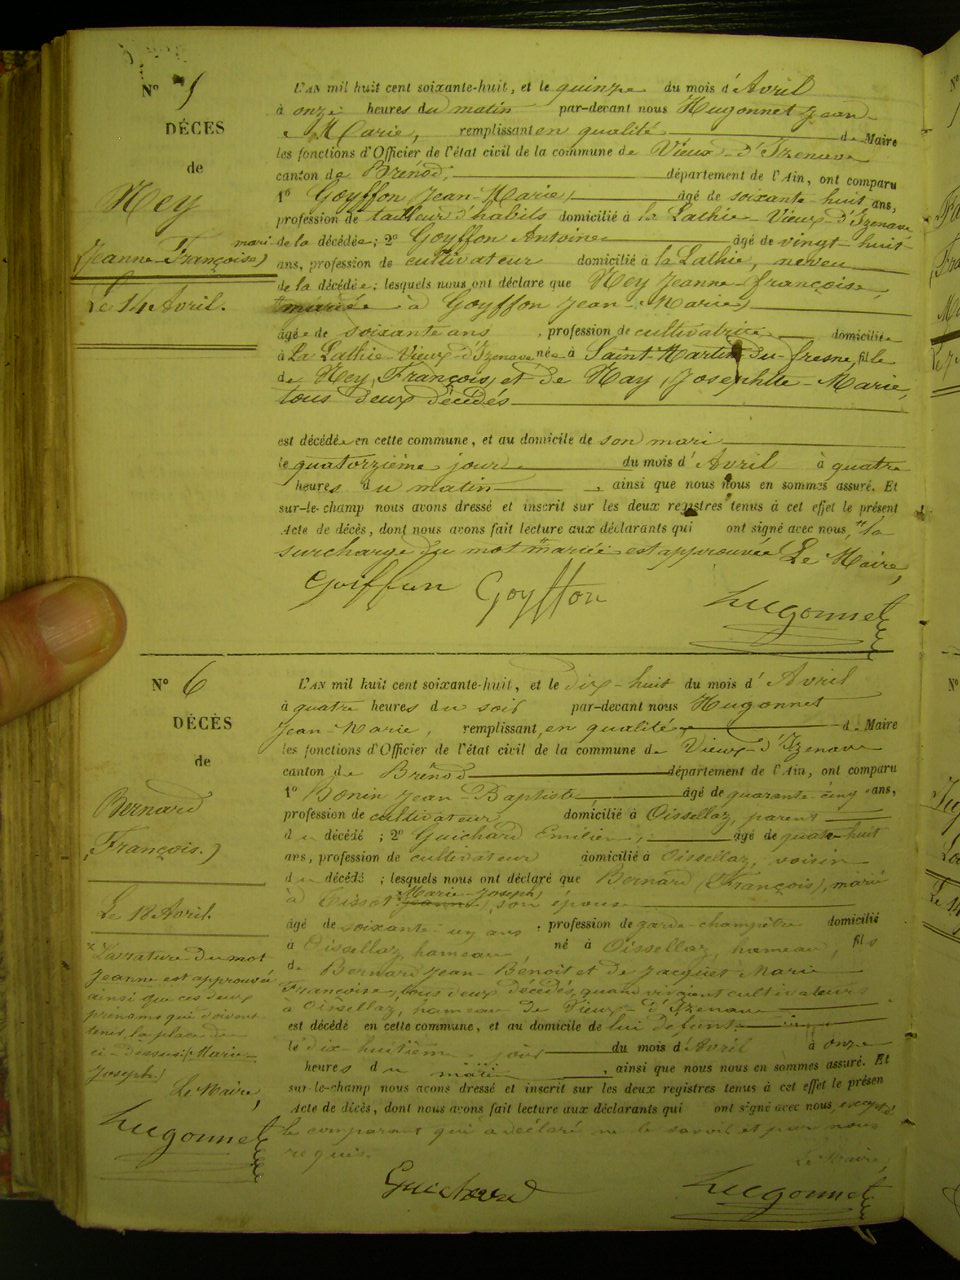 N° 5
DÉCÈS
de
Ney
(Jeanne-Françoise)
Le 14 Avril.
L'AN mil huit cent soixante-huit, et le quinze du mois d'Avril
à onze heures du matin par-devant nous Hugonnet Jean-
Marie, remplissant en qualité de Maire
les fonctions d'Officier de l'état civil de la commune de Vieux-d'Izenave
canton de Brénod, département de l'Ain, ont comparu
1° Goyffon Jean-Marie, âgé de soixante-huit ans,
profession de tailleur d'habits domicilié à la Lathie-Vieux d'Izenave
mari de la décédée; 2° Goyffon Antoine âgé de vingt-huit
ans, profession de cultivateur domicilié à la Lathie, neveu
de la décédée; lesquels nous ont déclaré que Ney Jeanne-françoise,
mariée à Goyffon Jean-Marie,
âgée de soixante ans, profession de cultivatrice domiciliée
à La Lathie-Vieux-d'Izenave née à Saint-Martin-du-fresne, fille
de Ney, François, et de Nay, Josephte-Marie,
tous deux décédés
est décédée en cette commune, et au domicile de son mari
le quatorzième jour du mois d'Avril à quatre
heures du matin, ainsi que nous nous en sommes assuré. Et
sur-le-champ nous avons dressé et inscrit sur les deux registres tenus à cet effet le présent
Acte de décès, dont nous avons fait lecture aux déclarants qui ont signé avec nous, "la
surcharge du mot "mariée" est approuvée Le Maire,
Goiffon Goyffon Hugonnet
N° 6
DÉCÈS
de
Bernard
(François.)
Le 18 Avril.
L'AN mil huit cent soixante-huit, et le dix-huit du mois d'Avril
à quatre heures du soir par-devant nous Hugonnet
Jean-Marie, remplissant en qualité de Maire
les fonctions d'Officier de l'état civil de la commune de Vieux-d'Izenave
canton de Brénod département de l'Ain, ont comparu
1° Bonin Jean-Baptiste, âgé de quarante-cinq ans,
profession de cultivateur domicilié à Oissellaz, parent
du décédé; 2° Guichard Emilien, âgé de huit
ans, profession de cultivateur domicilié à Oissellaz, voisin
du décédé; lesquels nous ont déclaré que Bernard (François), marié
à Cissot Marie-Joseph, son épouse
âgé de soixante un ans, profession de garde-champêtre domicilié
à Oissellaz, hameau, né à Oissellaz, hameau, fils
de Bernard Jean-Benoit et de Jacquet Marie
Françoise, tous deux décédés, quand vivaient cultivateurs
à Oissellaz, hameau de Vieux-d'Izenave
est décédé en cette commune, et au domicile de lui defunt
le dix-huitième jour du mois d'Avril à onze
heures du matin, ainsi que nous nous en sommes assuré. Et
sur-le-champ nous avons dressé et inscrit sur les deux registres tenus à cet effet le présen
Acte de décès, dont nous avons fait lecture aux déclarants qui ont signé avec nous, excepté
le comparant qui a déclaré ne le savoir et pour nous
requis.
Le Maire,
Guichard Hugonnet
La rature du mot
Jeanne est approuvée
ainsi que ces deux
prénoms qui doivent
tenir la place du
ci-dessus (Marie-
Joseph.)
Le Maire,
Hugonnet